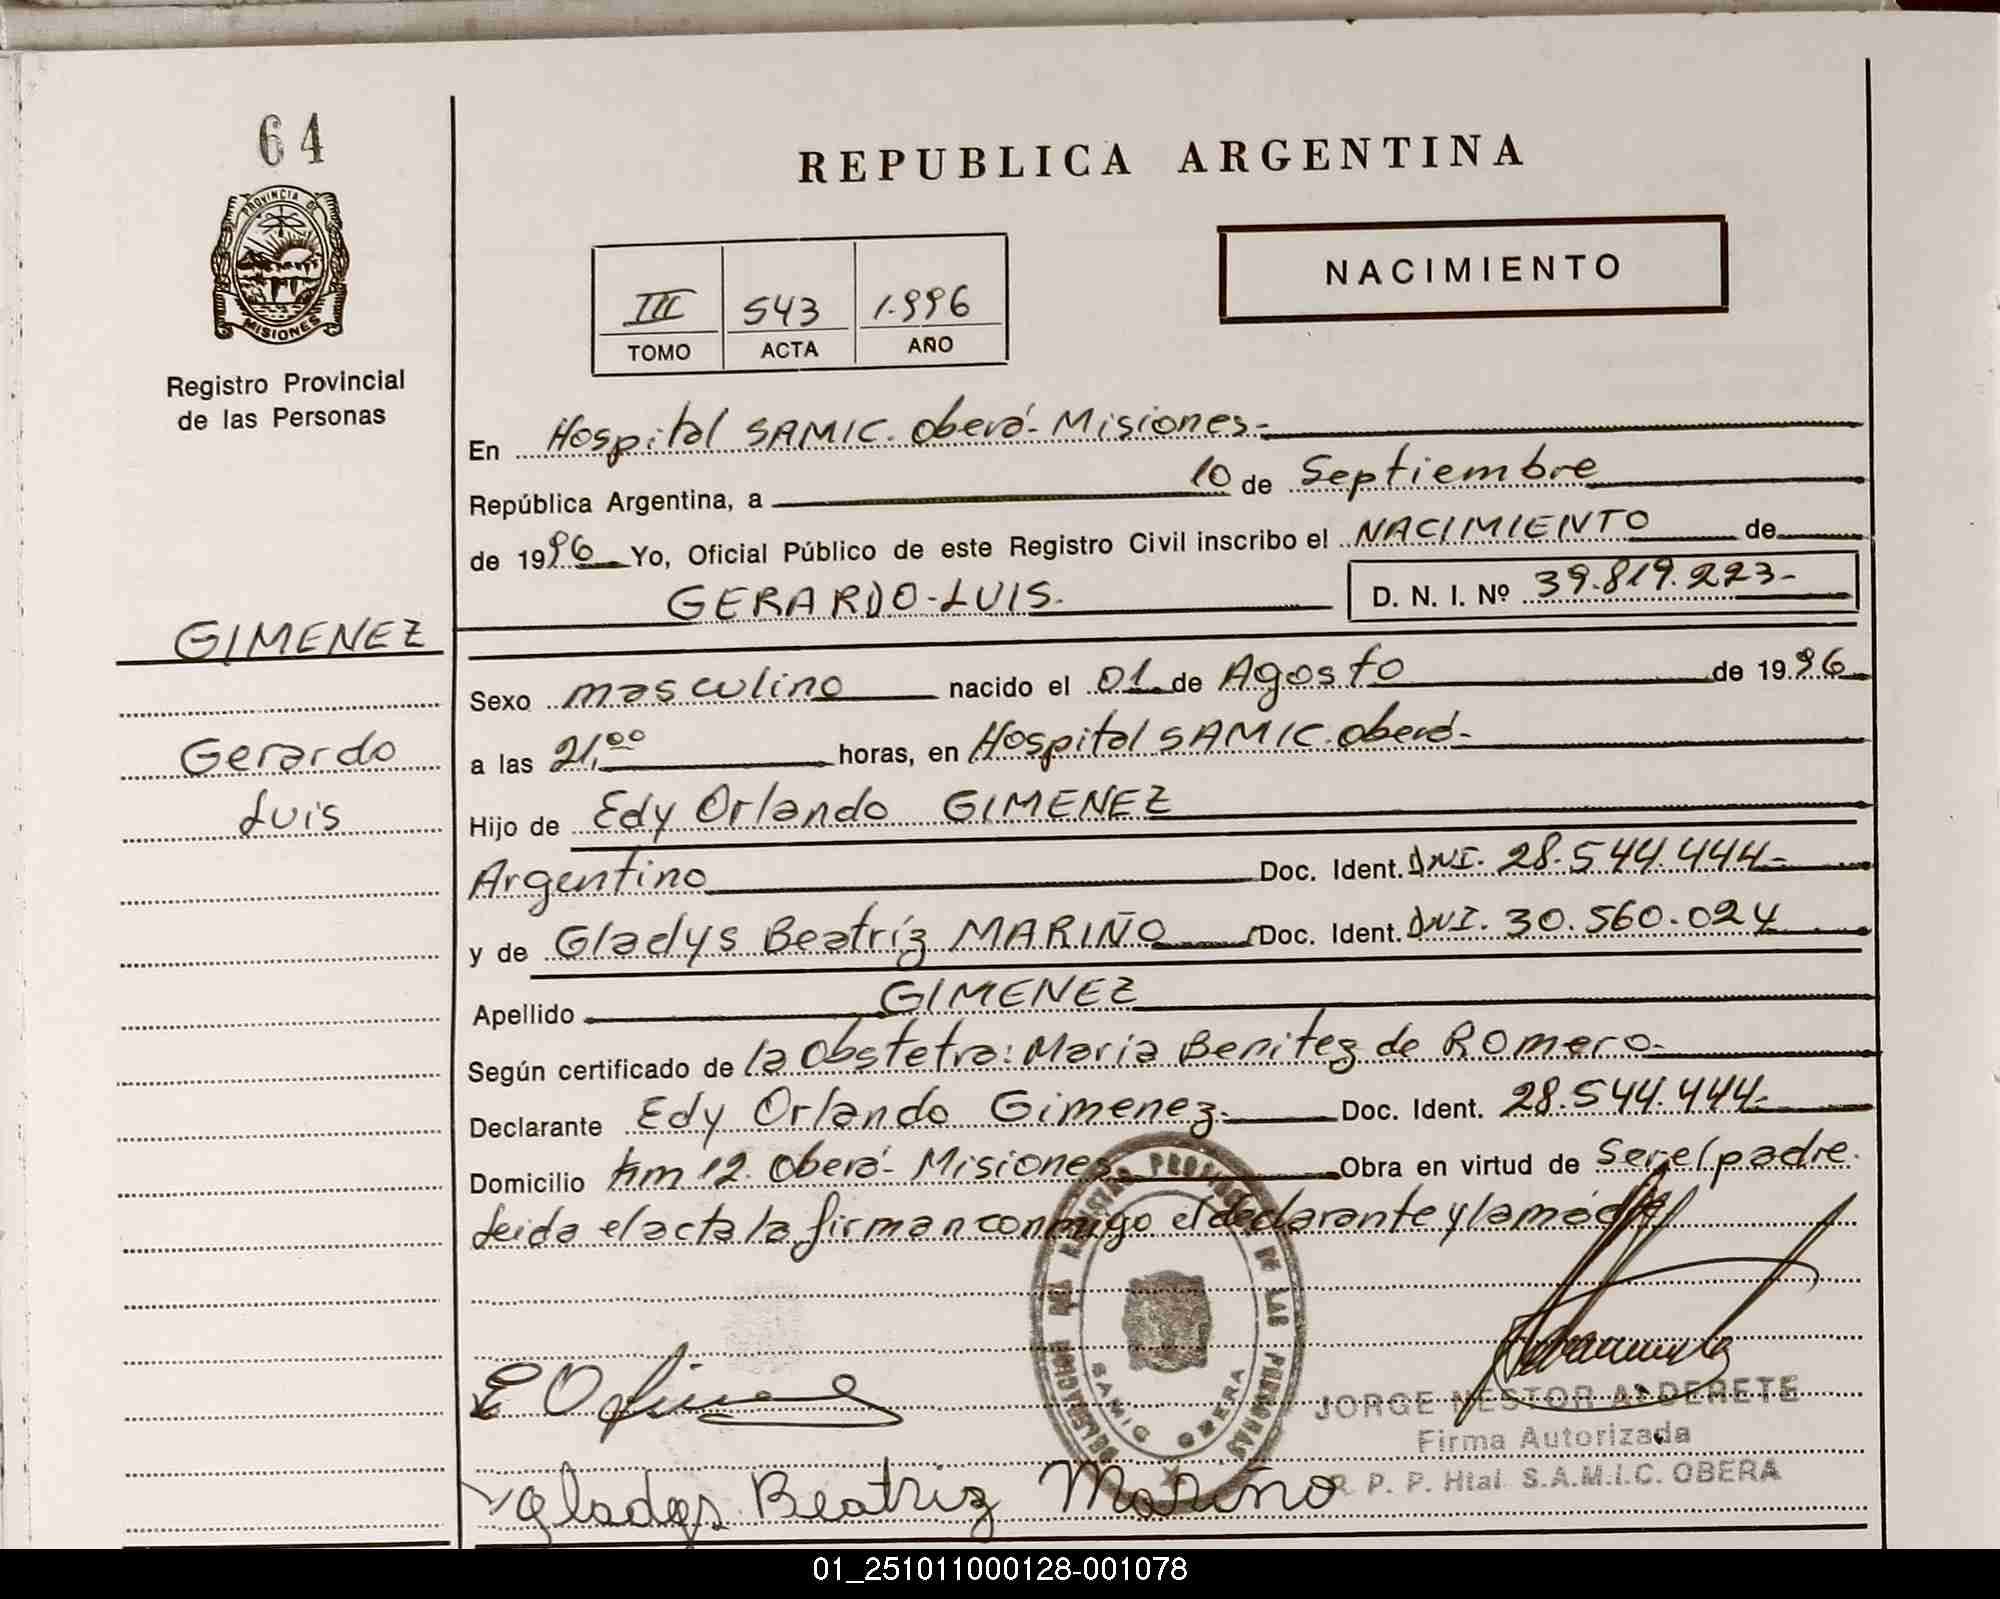 64
PROVINCIA DE
MISIONES
Registro Provincial
de las Personas
REPUBLICA ARGENTINA
III 543 1.996
TOMO ACTA AÑO
NACIMIENTO
En Hospital SAMIC. Oberá - Misiones -
República Argentina, a 10 de Septiembre
de 1996 Yo, Oficial Público de este Registro Civil inscribo el NACIMIENTO de
GERARDO - LUIS. D. N. I. Nº 39.819.223-
GIMENEZ
Gerardo
Luis
Sexo masculino nacido el 01 de Agosto de 1996
a las 21,00 horas, en Hospital SAMIC. Oberá -
Hijo de Edy Orlando GIMENEZ
Argentino Doc. Ident. DNI. 28.544.444-
y de Gladys Beatríz MARIÑO Doc. Ident. DNI. 30.560.024
Apellido GIMENEZ
Según certificado de la Obstetra: María Benitez de Romero -
Declarante Edy Orlando Gimenez. Doc. Ident. 28.544.444-
Domicilio Km 12. Oberá - Misiones Obra en virtud de ser el padre.
Leida el acta la firman conmigo el declarante y la madre
DELEGACION DEL REGISTRO PROVINCIAL DE LAS PERSONAS
SAMIC OBERA
JORGE NESTOR ALDERETE
Firma Autorizada
R. P. P. Htal. S.A.M.I.C. OBERA
Gladys Beatriz Mariño
01_251011000128-001078